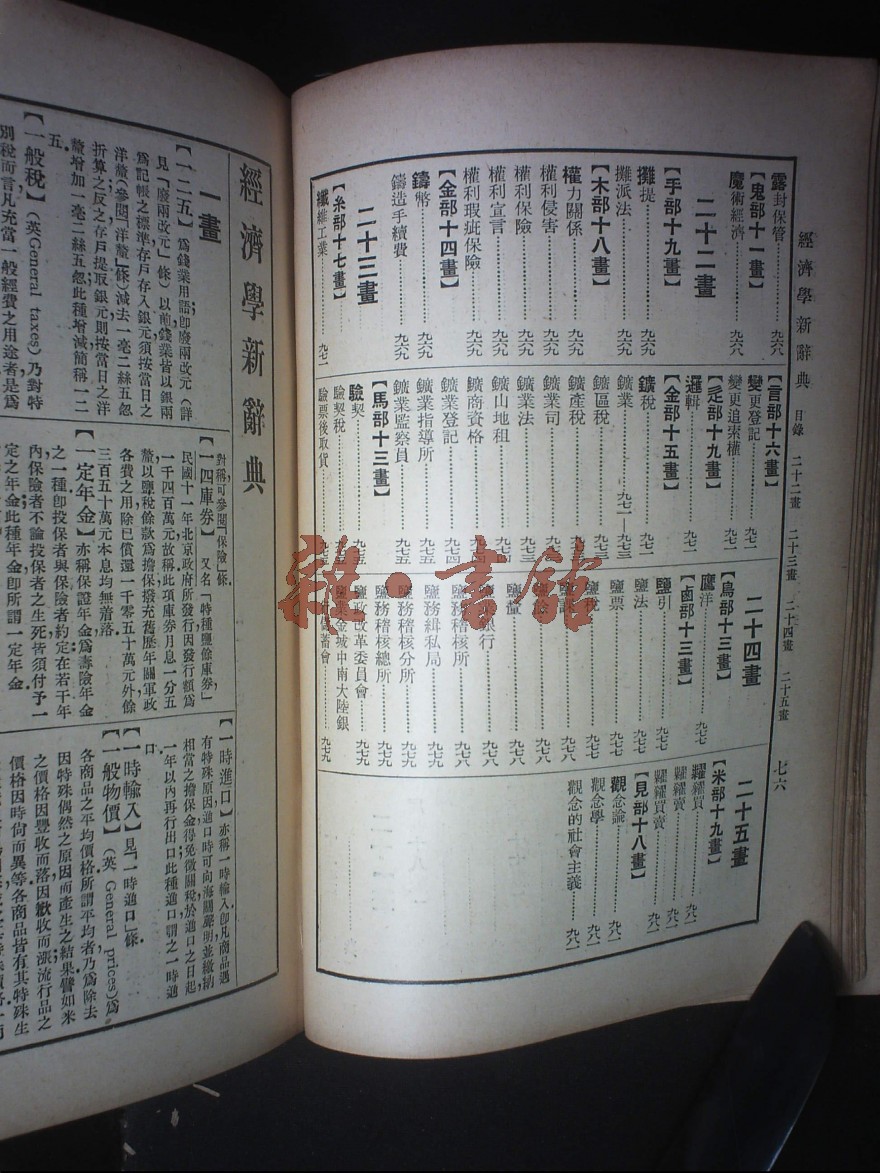 經濟學新辭典 目錄 二十二畫 二十三畫 二十四畫 二十五畫 七六
露封保管………九六八
【鬼部十一畫】
魔術經濟………九六八
二十二畫
【手部十九畫】
攤提………九六九
攤派法………九六九
【木部十八畫】
權力關係………九六九
權利侵害………九六九
權利保險………九六九
權利宣言………九六九
權利瑕疵保險………九六九
【金部十四畫】
鑄幣………九六九
鑄造手續費………九六九
二十三畫
【糸部十七畫】
纖維工業………九七一
【言部十六畫】
變更登記………九七一
變更追索權………九七一
【辵部十九畫】
邏輯………九七一
【金部十五畫】
鑛稅………九七一
鑛業………九七一—九七三
鑛業法
鑛業司
鑛產稅
鑛區稅
鑛山地租
鑛商資格
鑛業登記………九七四
鑛業指導所………九七五
鑛業監察員………九七五
【馬部十三畫】
驗契………九七五
驗契稅………九七五
驗票後取貨
二十四畫
【鳥部十三畫】
鷹洋………九七七
【鹵部十三畫】
鹽引………九七七
鹽法………九七七
鹽票………九七七
鹽稅………九七七
鹽務稽核所
鹽務緝私局
鹽務稽核分所
鹽務稽核總所………九七九
鹽政改革委員會………九七九
鹽業金城中南大陸銀
蓄會………九七九
二十五畫
【米部十九畫】
糶糴買………九八一
糶糴賣………九八一
糶糴買賣………九八一
【見部十八畫】
觀念論………九八一
觀念學………九八一
觀念的社會主義………九八一
經濟學新辭典
一畫
【一二五】 爲錢業用語,卽廢兩改元(詳
見「廢兩改元」條)以前,錢業皆以銀兩
爲記帳之標準,存戶存入銀元,須按當日之
洋釐(參閱「洋釐」條)減去一毫二絲五忽
折算之;反之,存戶提取銀元,則按當日之洋
釐增加一毫二絲五忽,此種增減簡稱一二
五.
【一般稅】 (英General taxes)乃對特
別稅而言,凡充當一般經費之用途者是爲
對稱,可參閱「保險」條.
【一四庫券】 又名「特種鹽餘庫券」,
民國十一年北京政府所發行,因發行額爲
一千四百萬元,故稱此項庫券月息一分五
釐,以鹽稅餘款爲擔保,撥充舊歷年關軍政
各費之用,除已償還一千零五十萬元外,餘
三百五十萬元,本息均無着落.
【一定年金】 亦稱保證年金,爲壽險年金
之一種,卽投保者與保險者約定在若干年
內,保險者不論投保者之生死,皆須付予一
定之年金,此種年金,卽所謂一定年金.
【一時進口】 亦稱一時輸入,卽凡商品遇
有特殊原因進口時,可向海關聲明並繳納
相當之擔保金,得免徵關稅,於進口之日起,
一年以內再行出口,此種進口,謂之一時進
口.
【一時輸入】 見「一時進口」條.
【一般物價】 (英General prices)爲
各商品之平均價格,所謂平均者,乃爲除去
因特殊偶然之原因而產生之結果,譬如米
之價格,因豐收而落,因歉收而漲;流行品之
價格,因時尚而異等,各商品皆有其特殊生
雜·書館